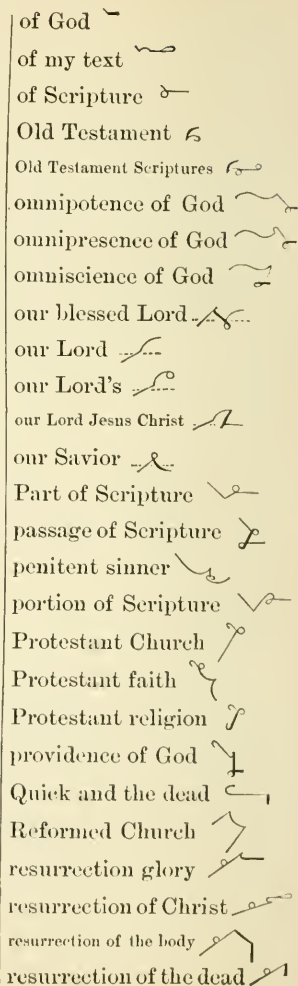 of God
of my text
of Scripture
Old Testament
Old Testament Scriptures
omnipotence of God
omnipresence of God
omniscience of God
our blessed Lord
our Lord
our Lord's
our Lord Jesus Christ
our Savior
Part of Scripture
passage of Scripture
penitent sinner
portion of Scripture
Protestant Church
Protestant faith
Protestant religion
providence of God
Quick and the dead
Reformed Church
resurrection glory
resurrection of Christ
resurrection of the body
resurrection of the dead